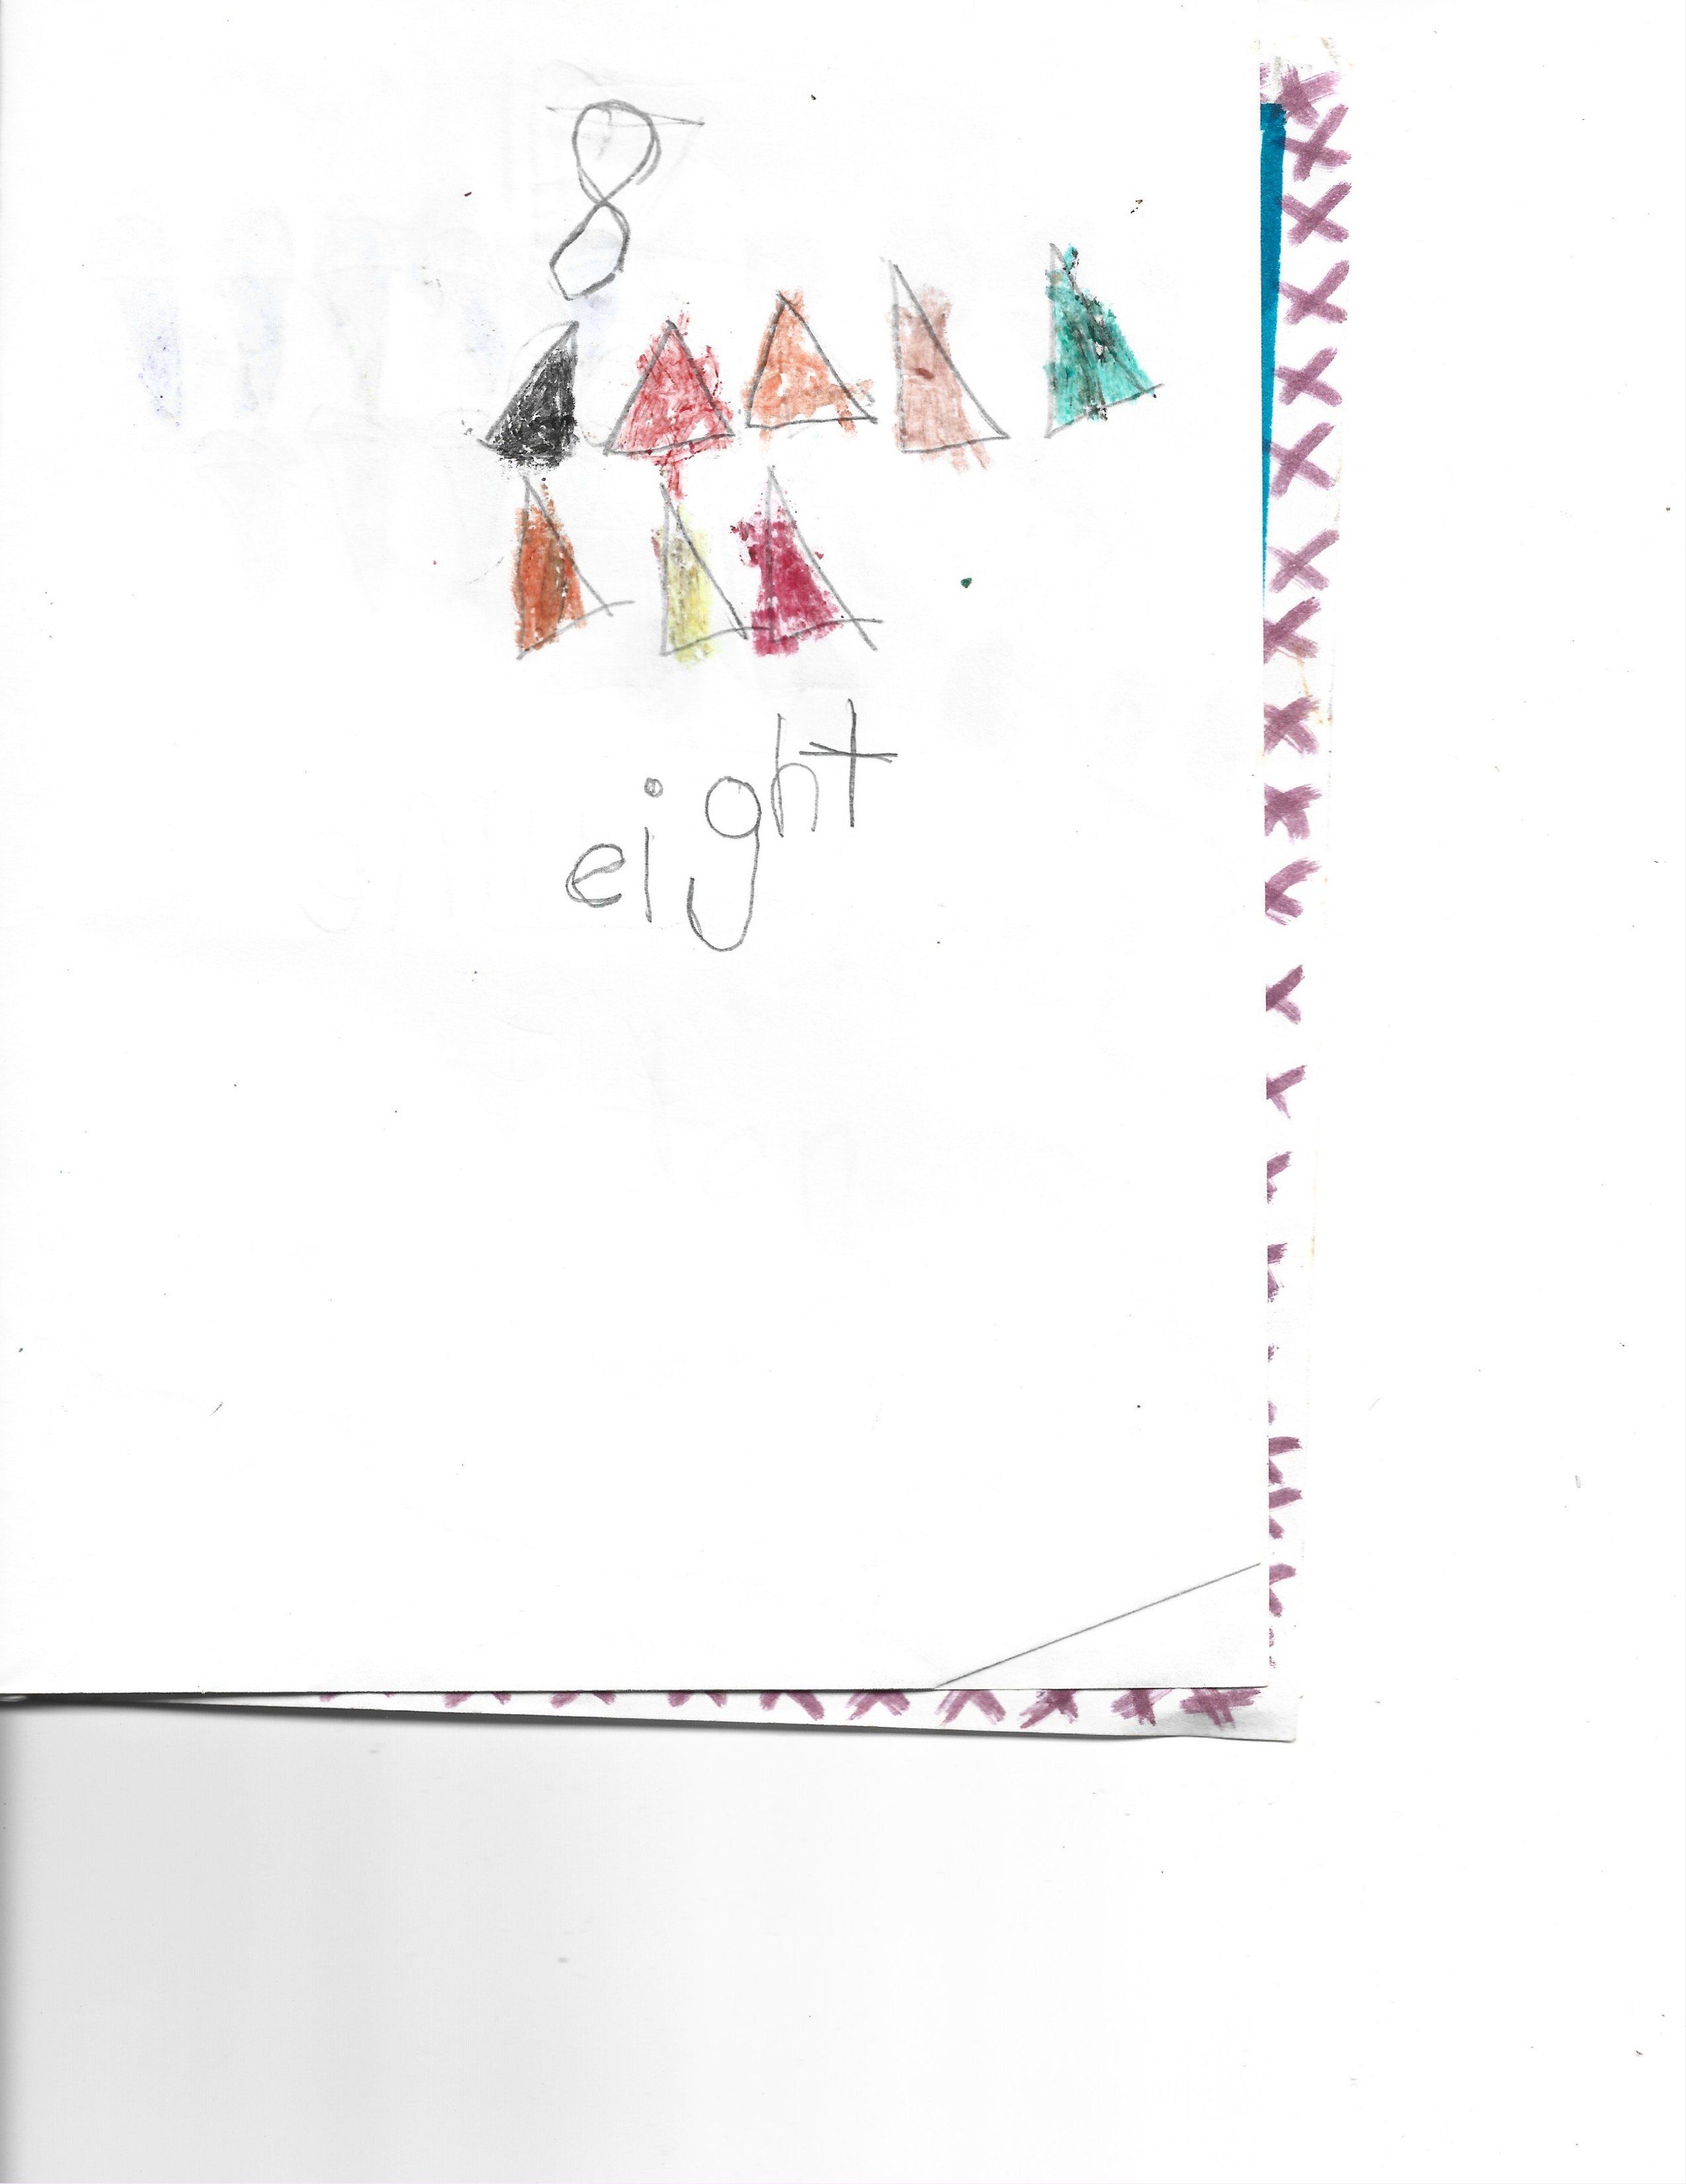 8
eight